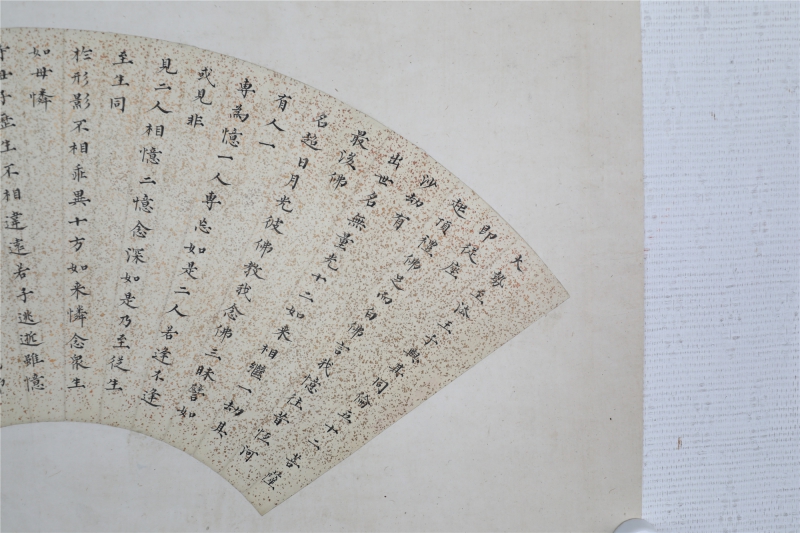 大勢至法王子與其同倫五十二菩薩
即從座
起頂禮佛足而白佛言我憶往昔恆河
沙劫有
出世名無量光十二如来相繼一劫其
最後佛
名超日月光彼佛教我念佛三昧譬如
有人一
專為憶一人專忘如是二人若逢不逢
或見非
見二人相憶二憶念深如是乃至從生
至生同
於形影不相乖異十方如来憐念眾生
如母憐
母子歷生不相違遠若子逃逝雖憶